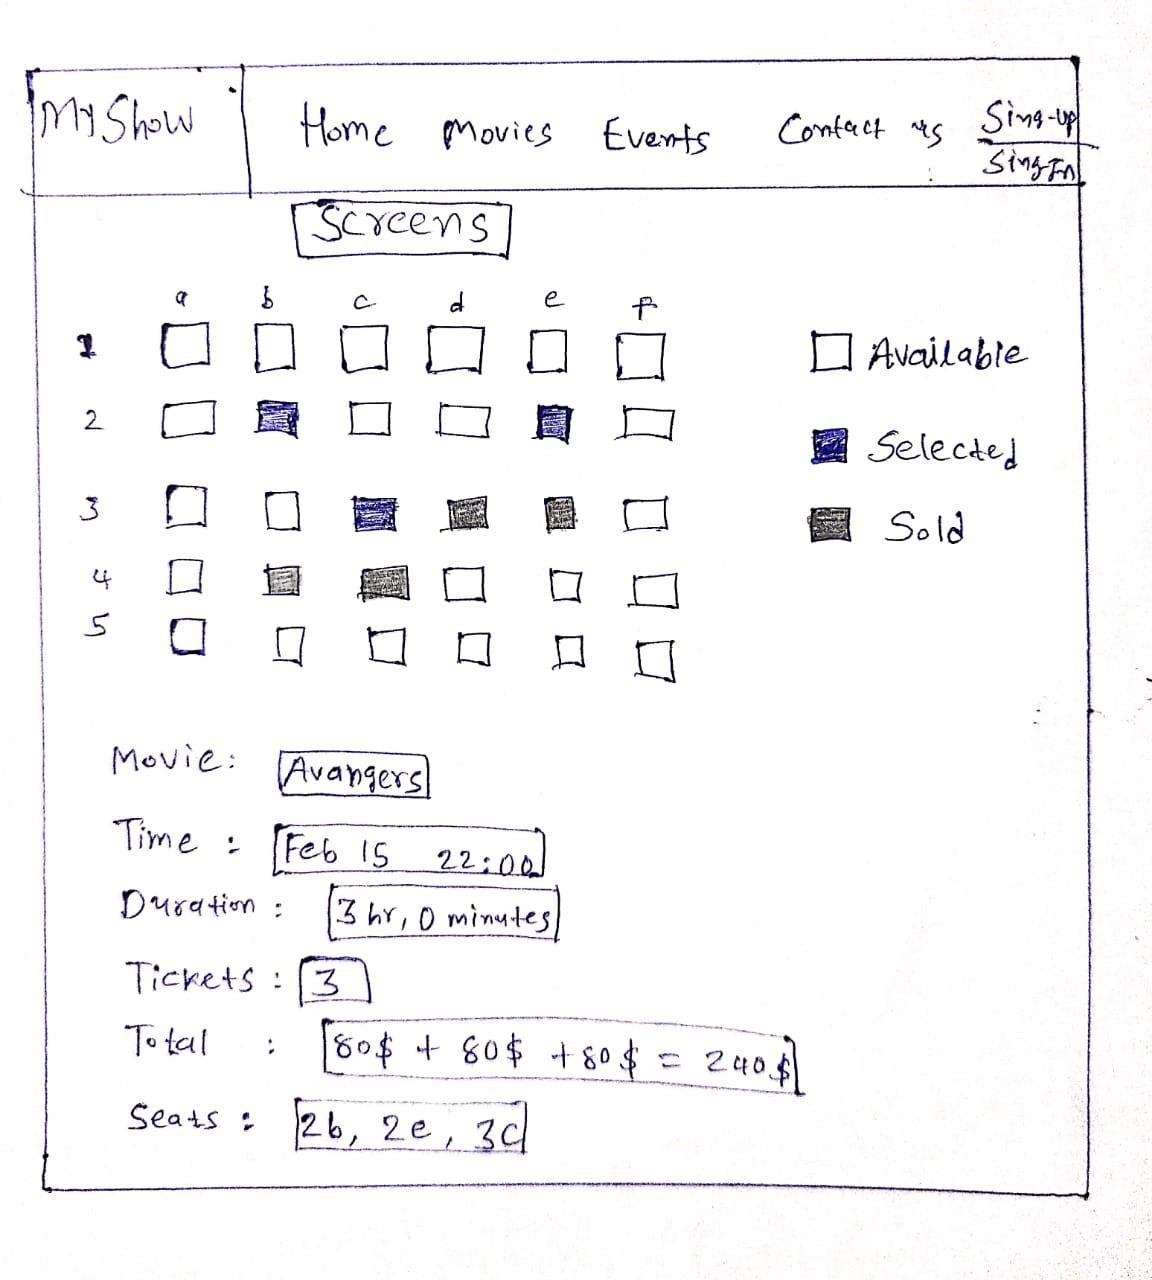 My Show Home Movies Events Contact us Sing-up
Sing In
Screens
a b c d e f
1
2
3
4
5
Available
Selected
Sold
Movie: Avangers
Time : Feb 15 22:00
Duration : 3 hr, 0 minutes
Tickets : 3
Total : 80$ + 80$ +80$ = 240$
Seats : 2b, 2e, 3c